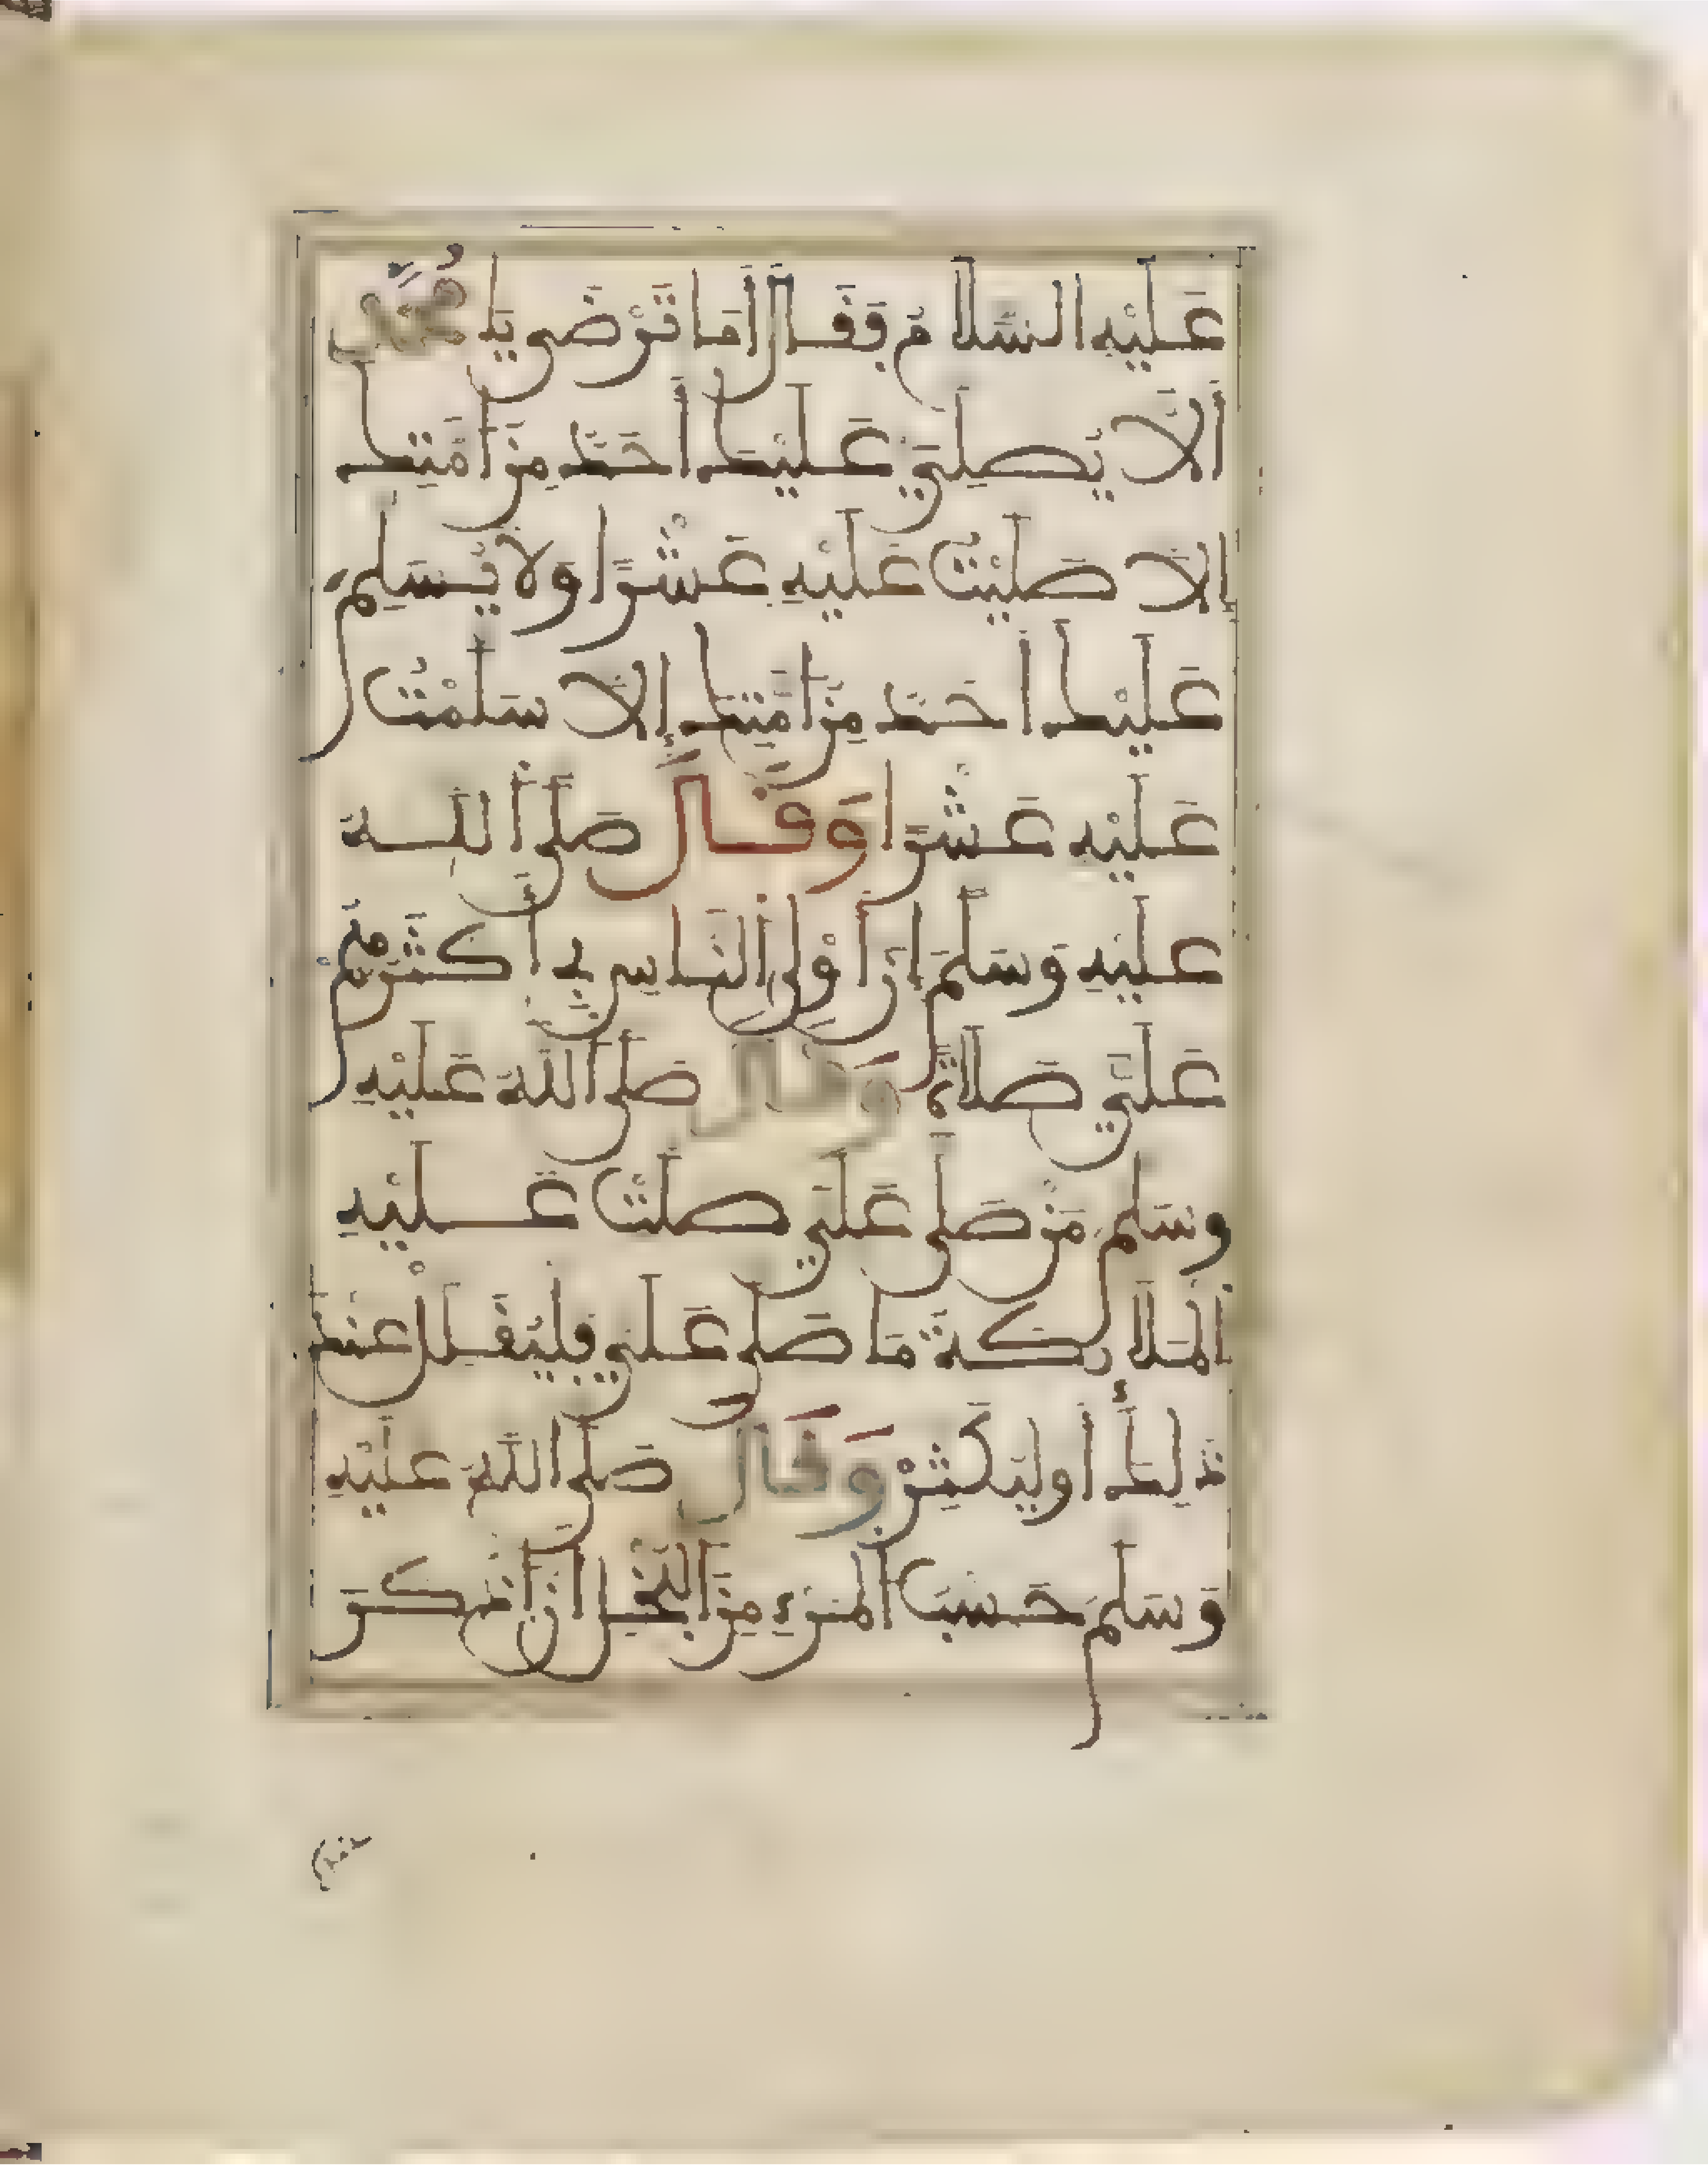 عَلَيْهِ السَّلَامُ فَقَالَ أَمَا تَرْضَى يَا مُحَمَّدُ
أَلَّا يُصَلِّيَ عَلَيْكَ أَحَدٌ مِنْ أُمَّتِكَ
إِلَّا صَلَّيْتُ عَلَيْهِ عَشْرًا وَلَا يُسَلِّمَ
عَلَيْكَ أَحَدٌ مِنْ أُمَّتِكَ إِلَّا سَلَّمْتُ
عَلَيْهِ عَشْرًا وَقَالَ صَلَّى اللهُ
عَلَيْهِ وَسَلَّمَ إِنَّ أَوْلَى النَّاسِ بِي أَكْثَرُهُمْ
عَلَيَّ صَلَاةً وَقَالَ صَلَّى اللهُ عَلَيْهِ
وَسَلَّمَ مَنْ صَلَّى عَلَيَّ صَلَّتْ عَلَيْهِ
الْمَلَائِكَةُ مَا صَلَّى عَلَيَّ فَلْيُقَلِّلْ عِنْدَ
ذَلِكَ أَوْ لِيُكْثِرْ وَقَالَ صَلَّى اللهُ عَلَيْهِ
وَسَلَّمَ حَسْبُ الْمَرْءِ مِنَ الْبُخْلِ أَنْ أُذْكَرَ